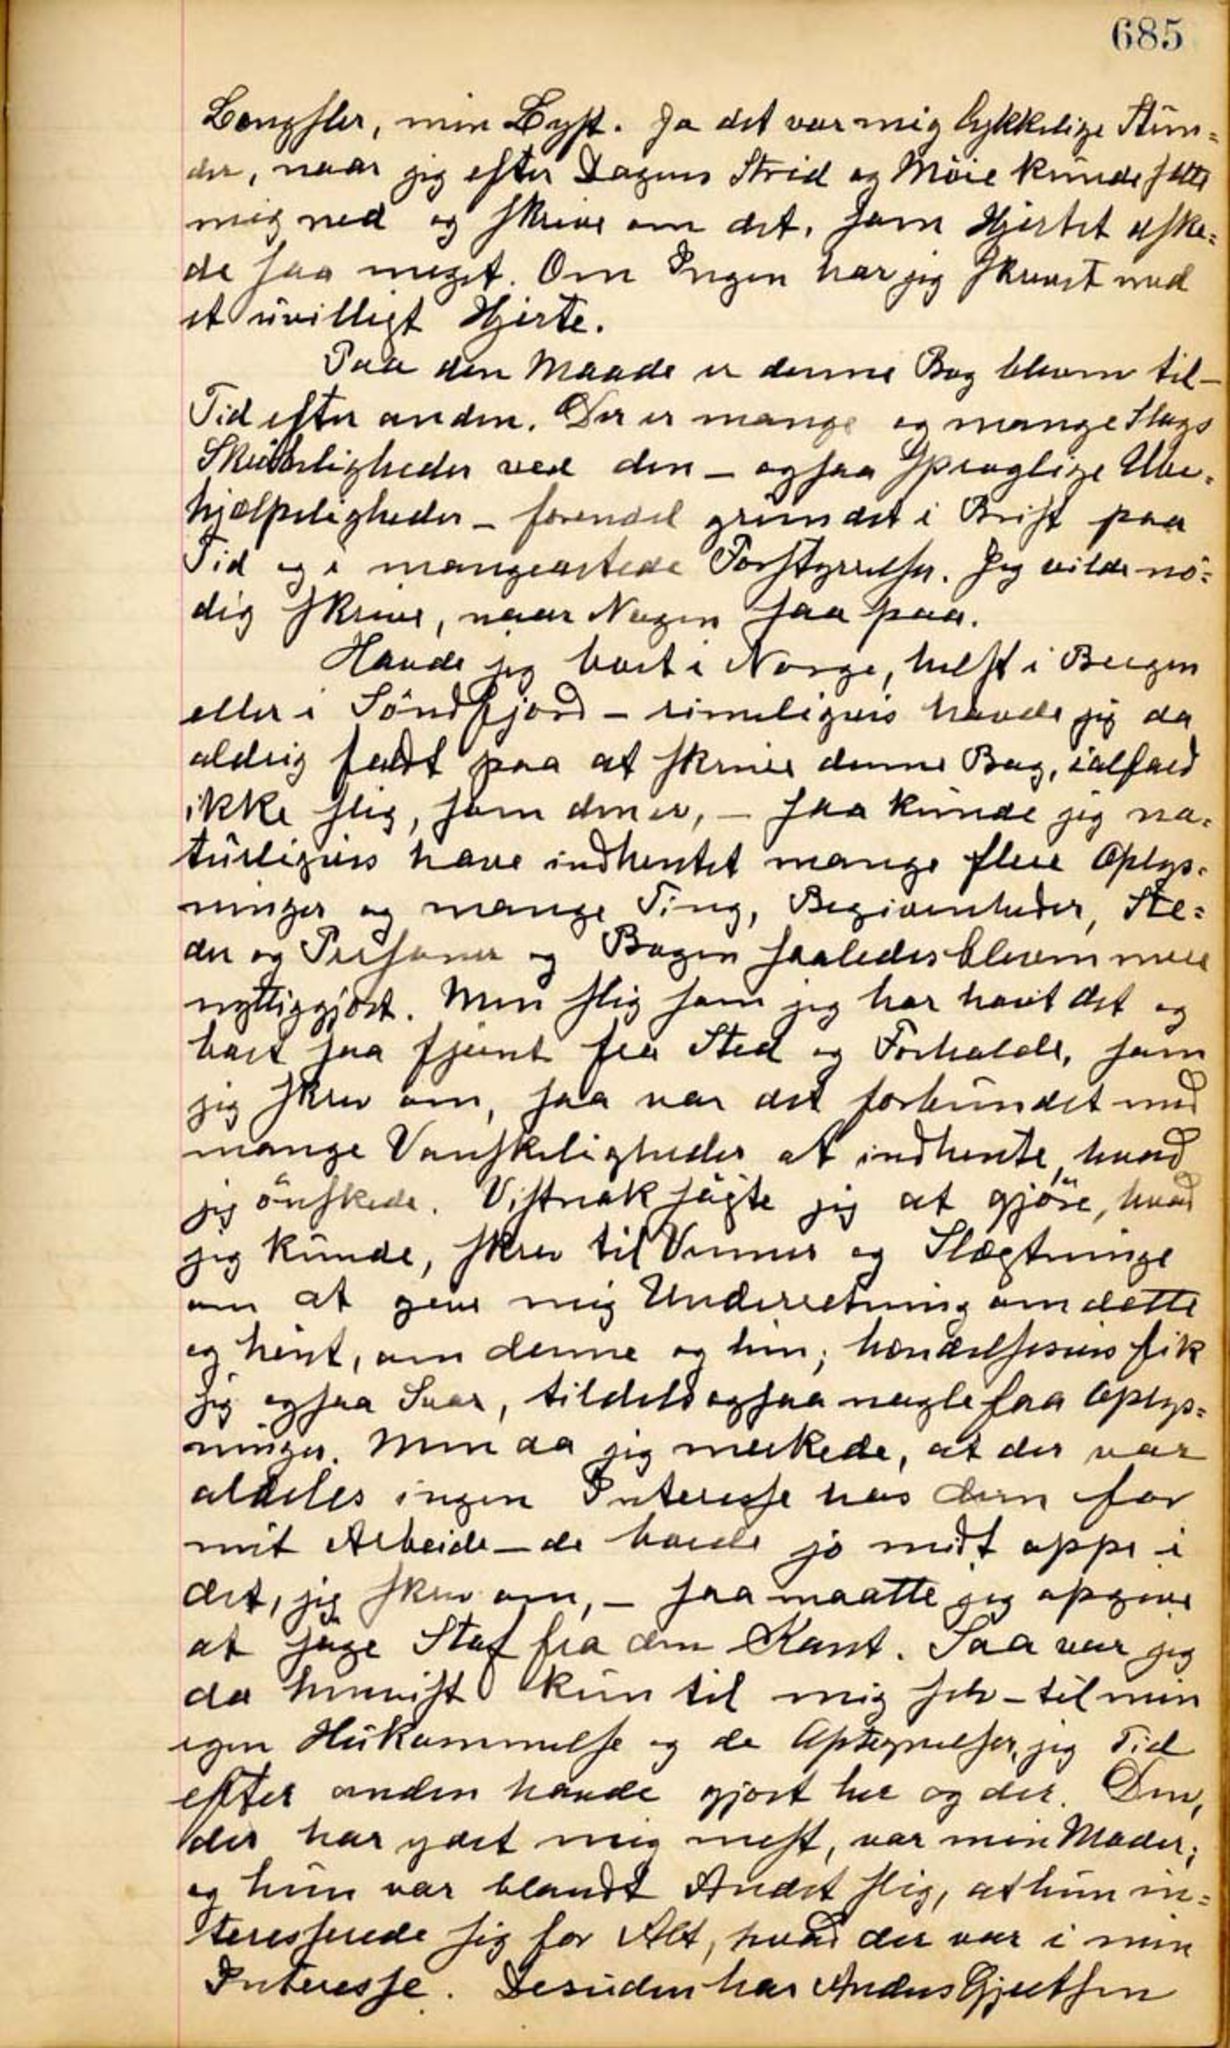 685
Længsler, min Lyst. Ja det var mig lykkelige Stun=
der, naar jeg efter Dagens Strid og Möie kunde sætte
mig ned og skrive om det, som Hjertet elske=
de saa meget. Om Ingen har jeg skrevet med
et uvilligt Hjerte.
Paa den Maade er denne Bog bleven til –
Tid efter anden. Der er mange og mange Slags
Skrøbeligheder ved den – ogsaa sproglige Ube=
hjælpeligheder – forendel grundet i Brist paa
Tid og i mangeartede Forstyrrelser. Jeg vilde nö=
dig skrive, naar Nogen saa paa.
Havde jeg boet i Norge, helst i Bergen
eller i Söndfjord – rimeligvis havde jeg da
aldrig faldt paa at skrive denne Bog, ialfald
ikke slig, som den er, – saa kunde jeg na=
turligvis have indhentet mange flere Oplys=
ninger og mange Ting, Begivenheder, Ste=
der og Personer og Bogen saaledes bleven mere
nyttiggjort. Men slig som jeg har havt det og
boet saa fjernt fra Sted og Forholde, som
jeg skrev om, saa var det forbundet med
mange Vanskeligheder at indhente, hvad
jeg önskede. Vistnok sögte jeg at gjöre, hvad
jeg kunde, skrev til Venner og Slægtninge
om at give mig Underretning om dette
og hint, om denne og hin; hændelsesvis fik
jeg ogsaa Svar, tildels ogsaa nogle faa Oplys=
ninger. Men da jeg merkede, at der var
aldeles ingen Interesse hos dem for
mit Arbeide – de boede jo midt oppe i
det, jeg skrev om, – saa maatte jeg opgive
at söge Stof fra den Kant. Saa var jeg
da henvist kun til mig selv – til min
egen Hukommelse og de Optegnelser, jeg Tid
efter anden havde gjort her og der. Den,
der har ydet mig mest, var min Moder;
og hun var blandt Andet slig, at hun in=
teresserede sig for Alt, hvad der var i min
Interesse. Desuden har Anders Gjertsen